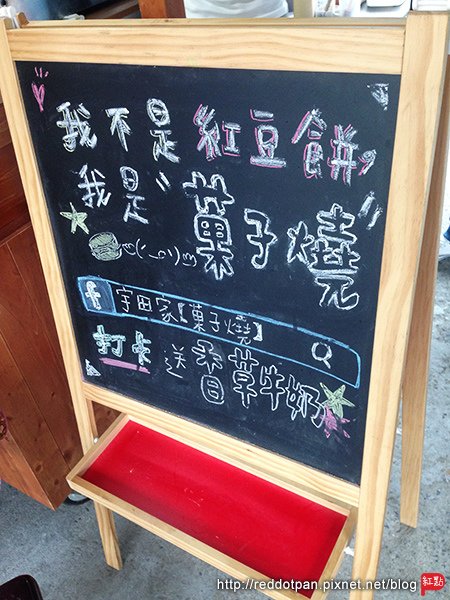 我不是紅豆餅,
我是"菓子燒"
f 宇田家【菓子燒】
打卡送香草牛奶
http://reddotpan.pixnet.net/blog 紅點